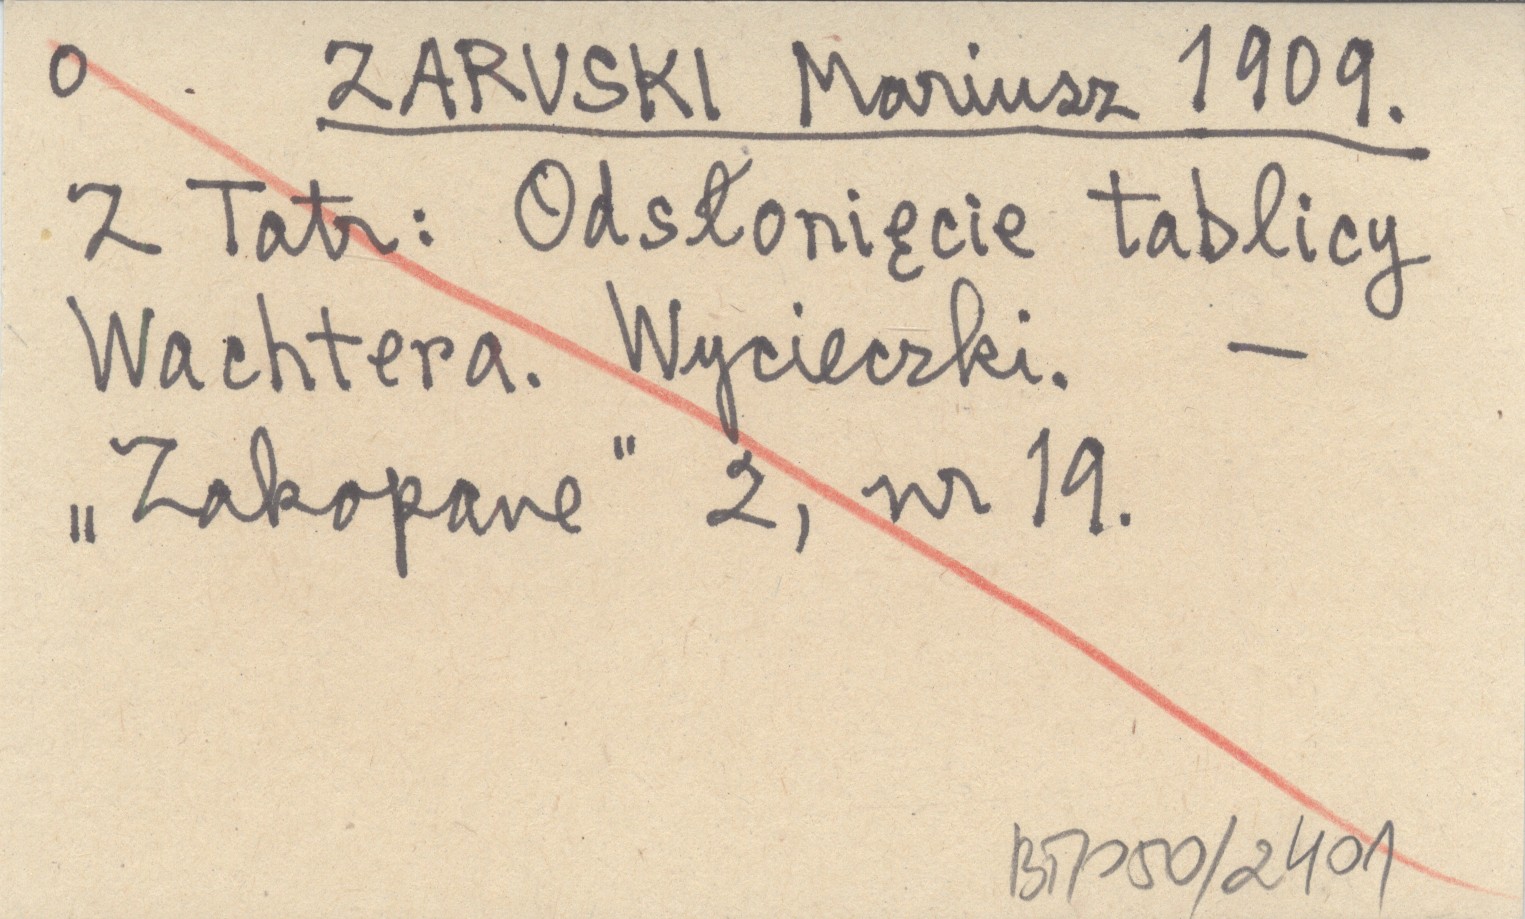 o ZARUSKI Mariusz 1909.
Z Tatr: Odsłonięcie tablicy
Wachtera. Wycieczki. –
„Zakopane" 2, nr 19.
BTP50/2401